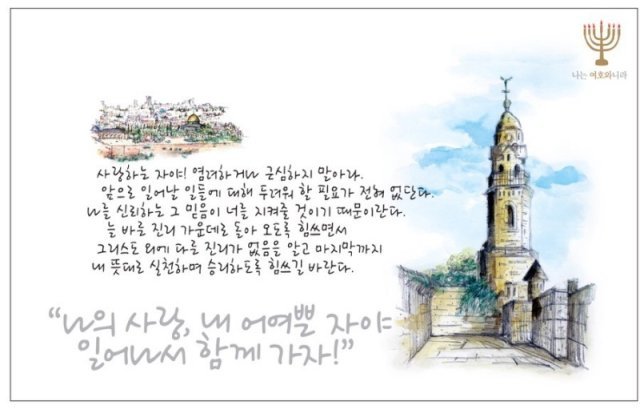 나는 여호와니라
사랑하는 자야! 염려하거나 근심하지 말아라.
앞으로 일어날 일들에 대해 두려워 할 필요가 전혀 없단다.
나를 신뢰하는 그 믿음이 너를 지켜줄 것이기 때문이란다.
늘 바른 진리 가운데로 돌아 오도록 힘쓰면서
그리스도 외에 다른 진리가 없음을 알고 마지막까지
내 뜻대로 실천하며 승리하도록 힘쓰길 바란다.
“나의 사랑, 내 어여쁜 자야
일어나서 함께 가자!”